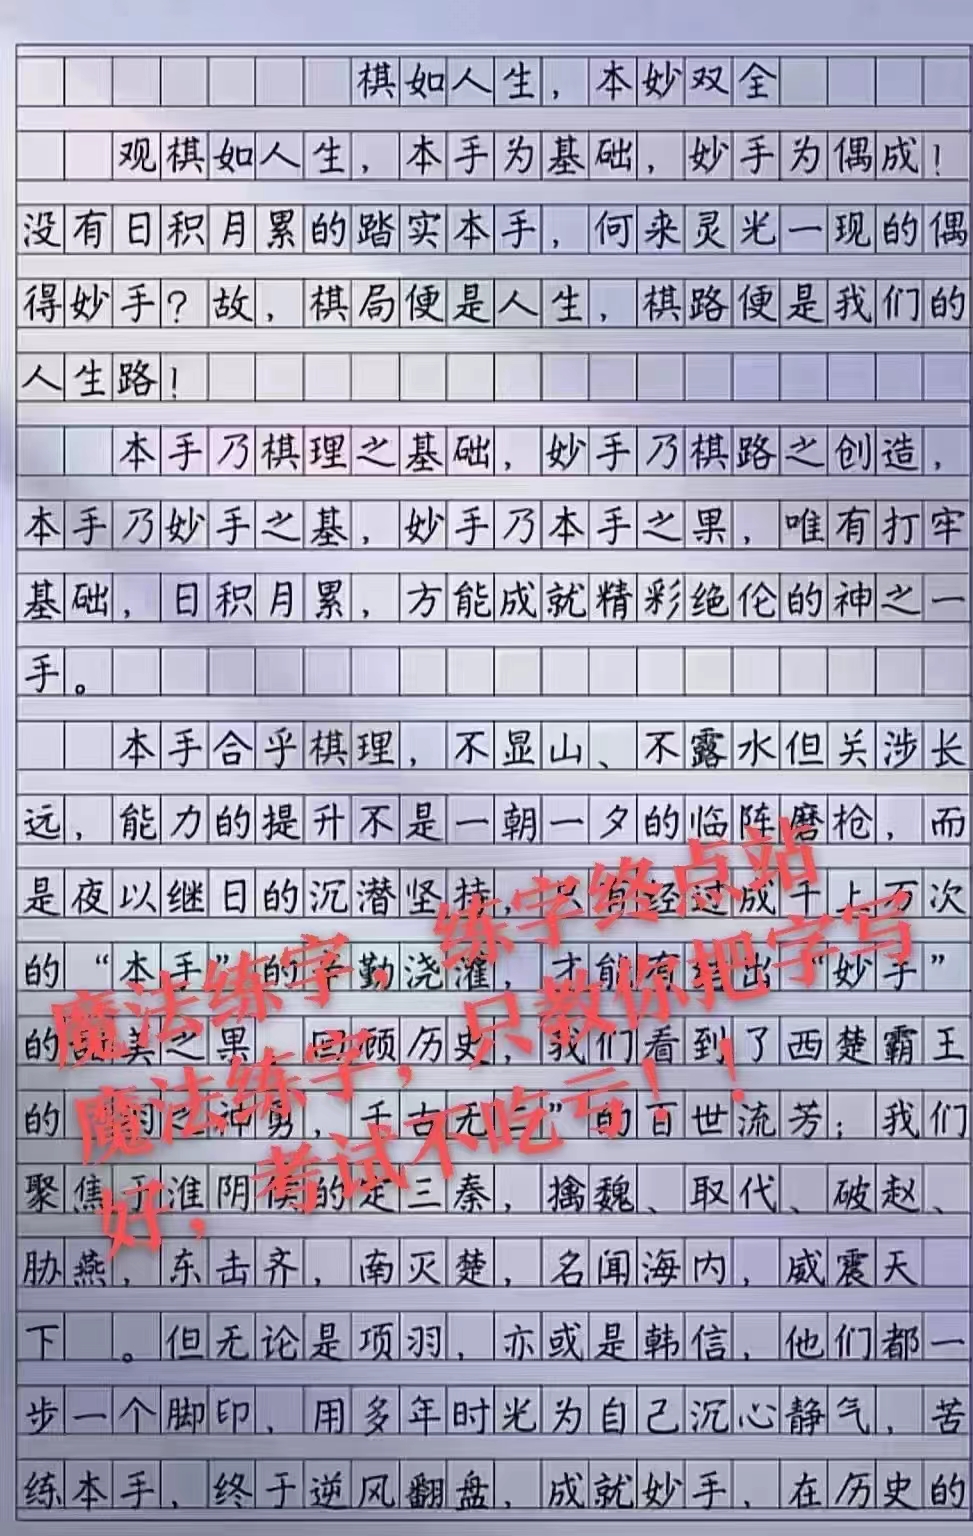 棋如人生，本妙双全
观棋如人生，本手为基础，妙手为偶成！
没有日积月累的踏实本手，何来灵光一现的偶
得妙手？故，棋局便是人生，棋路便是我们的
人生路！
本手乃棋理之基础，妙手乃棋路之创造，
本手乃妙手之基，妙手乃本手之果，唯有打牢
基础，日积月累，方能成就精彩绝伦的神之一
手。
本手合乎棋理，不显山、不露水但关涉长
远，能力的提升不是一朝一夕的临阵磨枪，而
是夜以继日的沉潜坚持，只有经过成千上万次
的“本手”的辛勤浇灌，才能有结出“妙手”
的美之果 回顾历史，我们看到了西楚霸王
的 羽之神勇，千古无二”的百世流芳；我们
聚焦于淮阴侯的定三秦，擒魏、取代、破赵、
胁燕，东击齐，南灭楚，名闻海内，威震天
下。但无论是项羽，亦或是韩信，他们都一
步一个脚印，用多年时光为自己沉心静气，苦
练本手，终于逆风翻盘，成就妙手，在历史的
魔法练字，练字终点站
魔法练字，只教你把字写
好，考试不吃亏！！